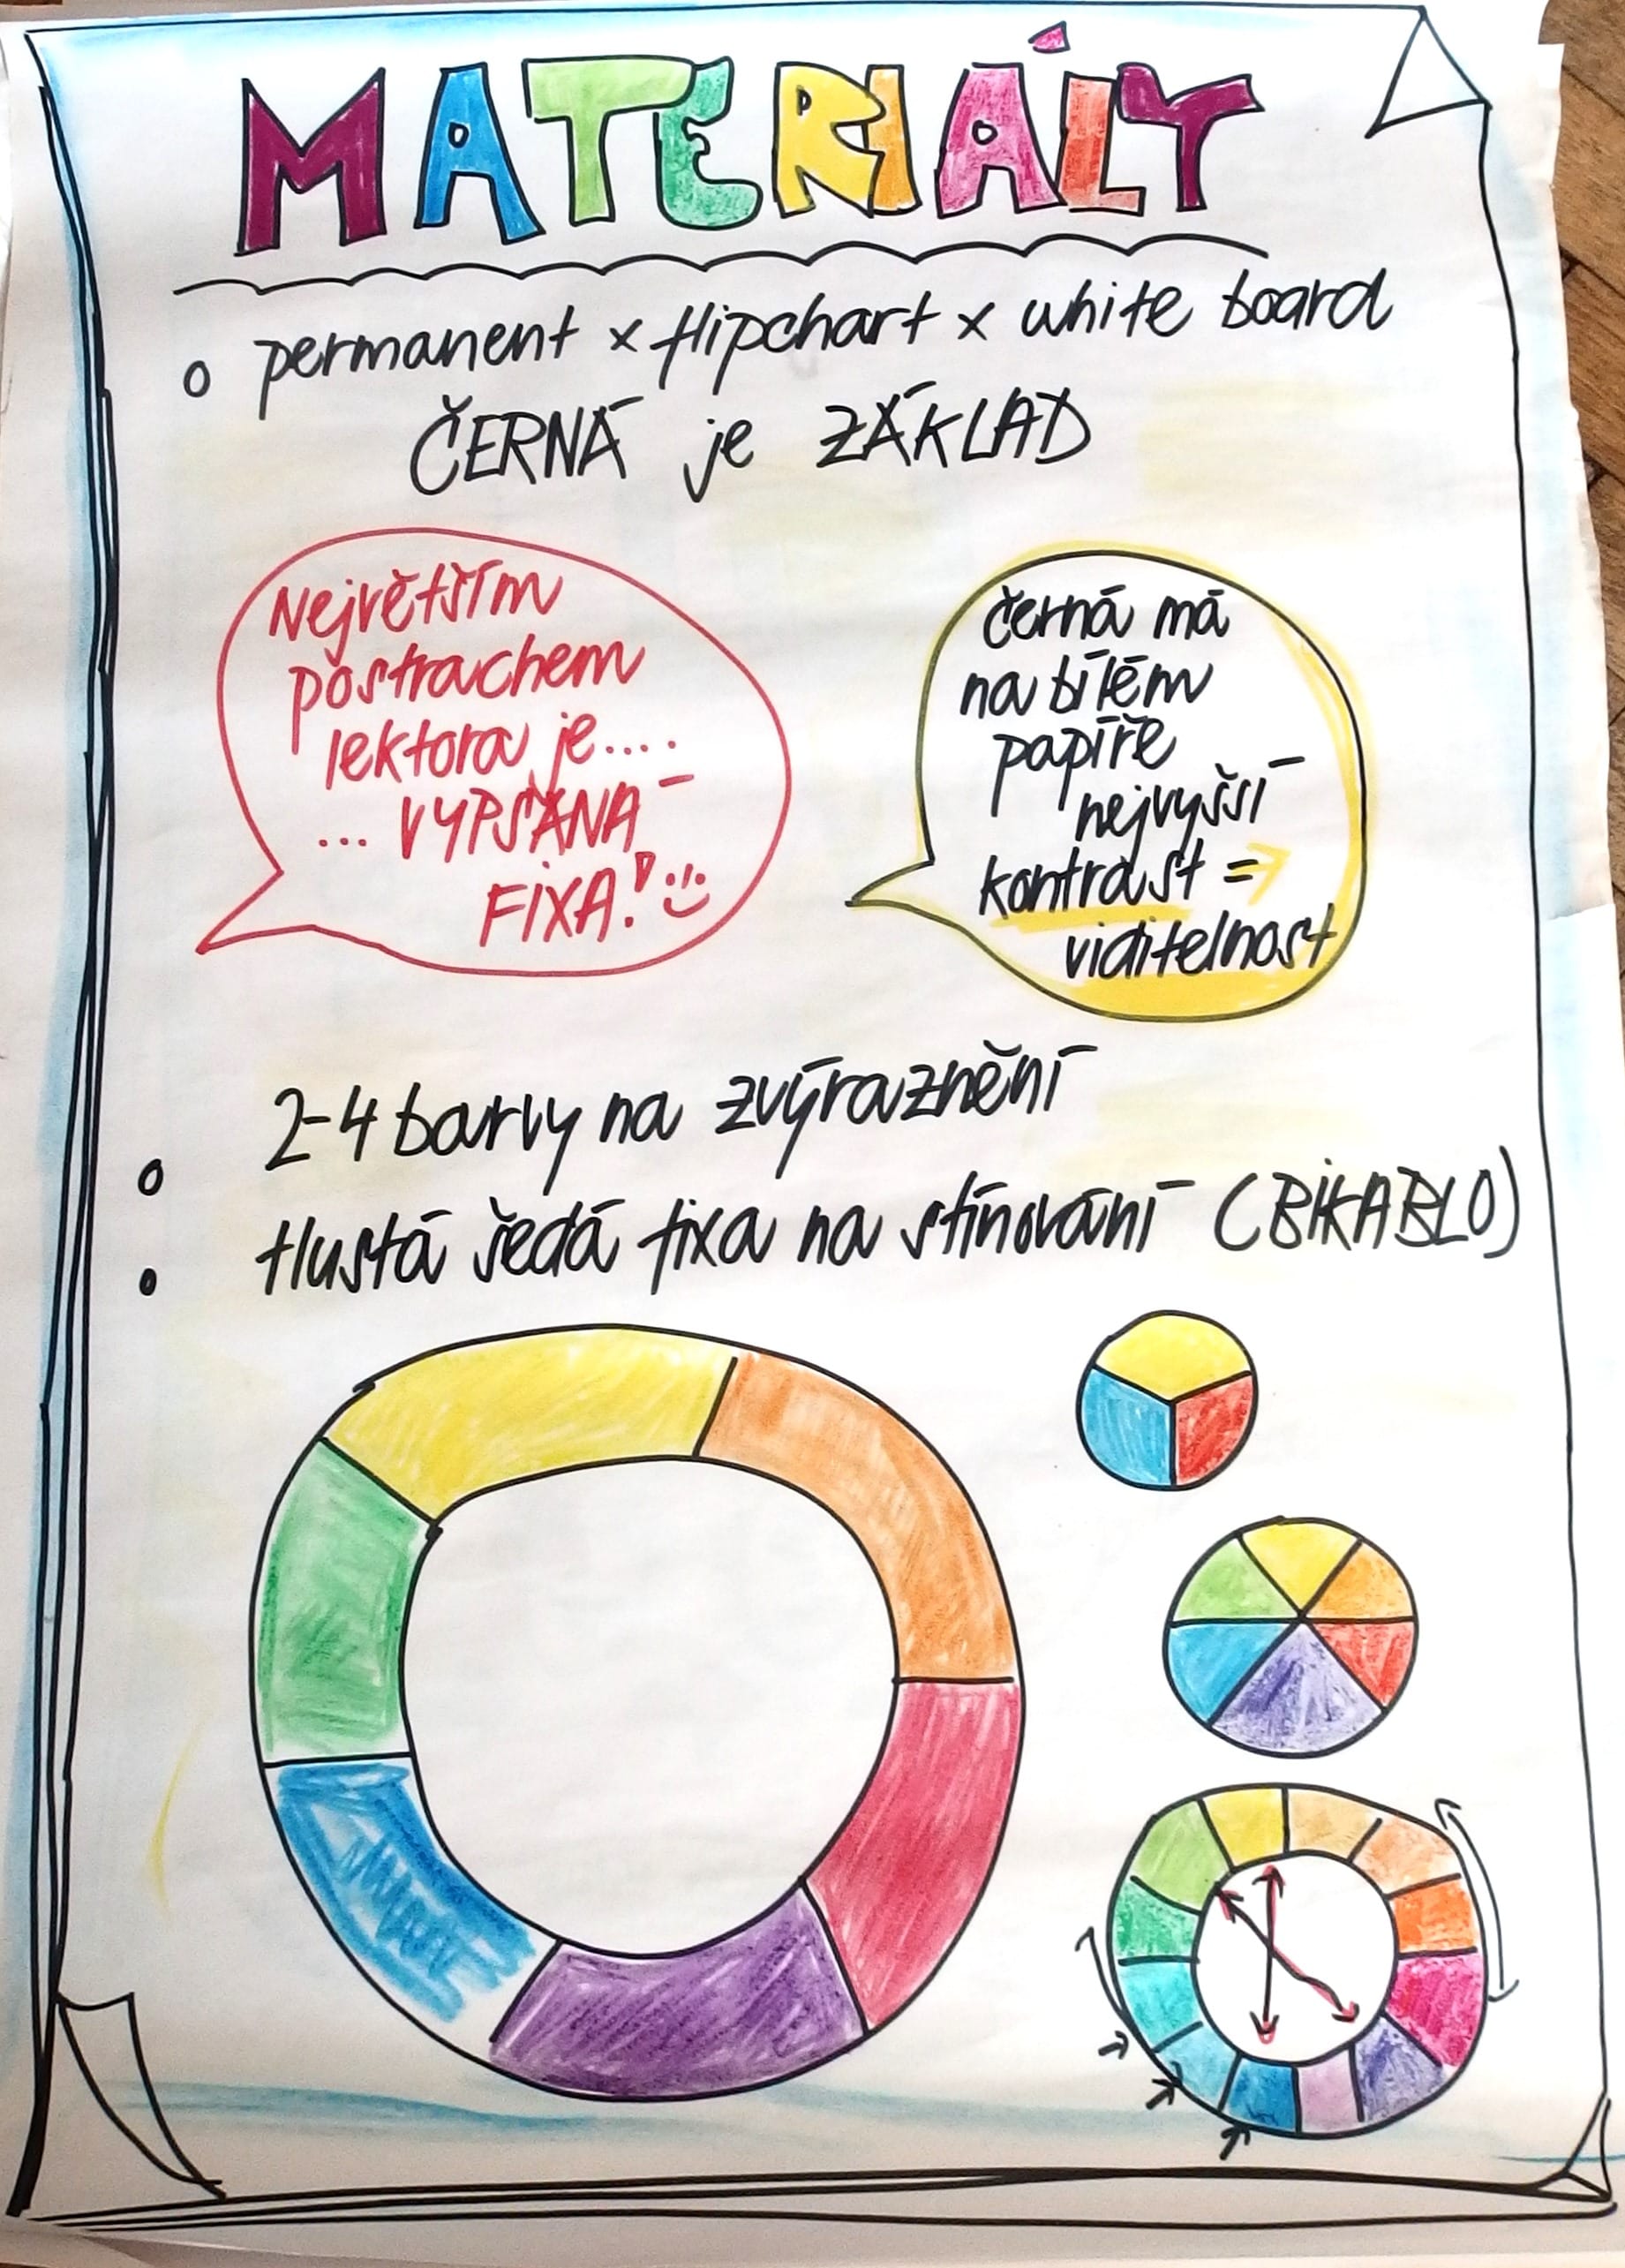 MATERIÁLY
permanent x flipchart x white board
ČERNÁ je ZÁKLAD
Největším
postrachem
lektora je....
... VYPSANÁ
FIXA! :)
černá má
na bílém
papíře
nejvyšší
kontrast =>
viditelnost
2-4 barvy na zvýraznění
tlustá šedá fixa na stínování (BIKABLO)